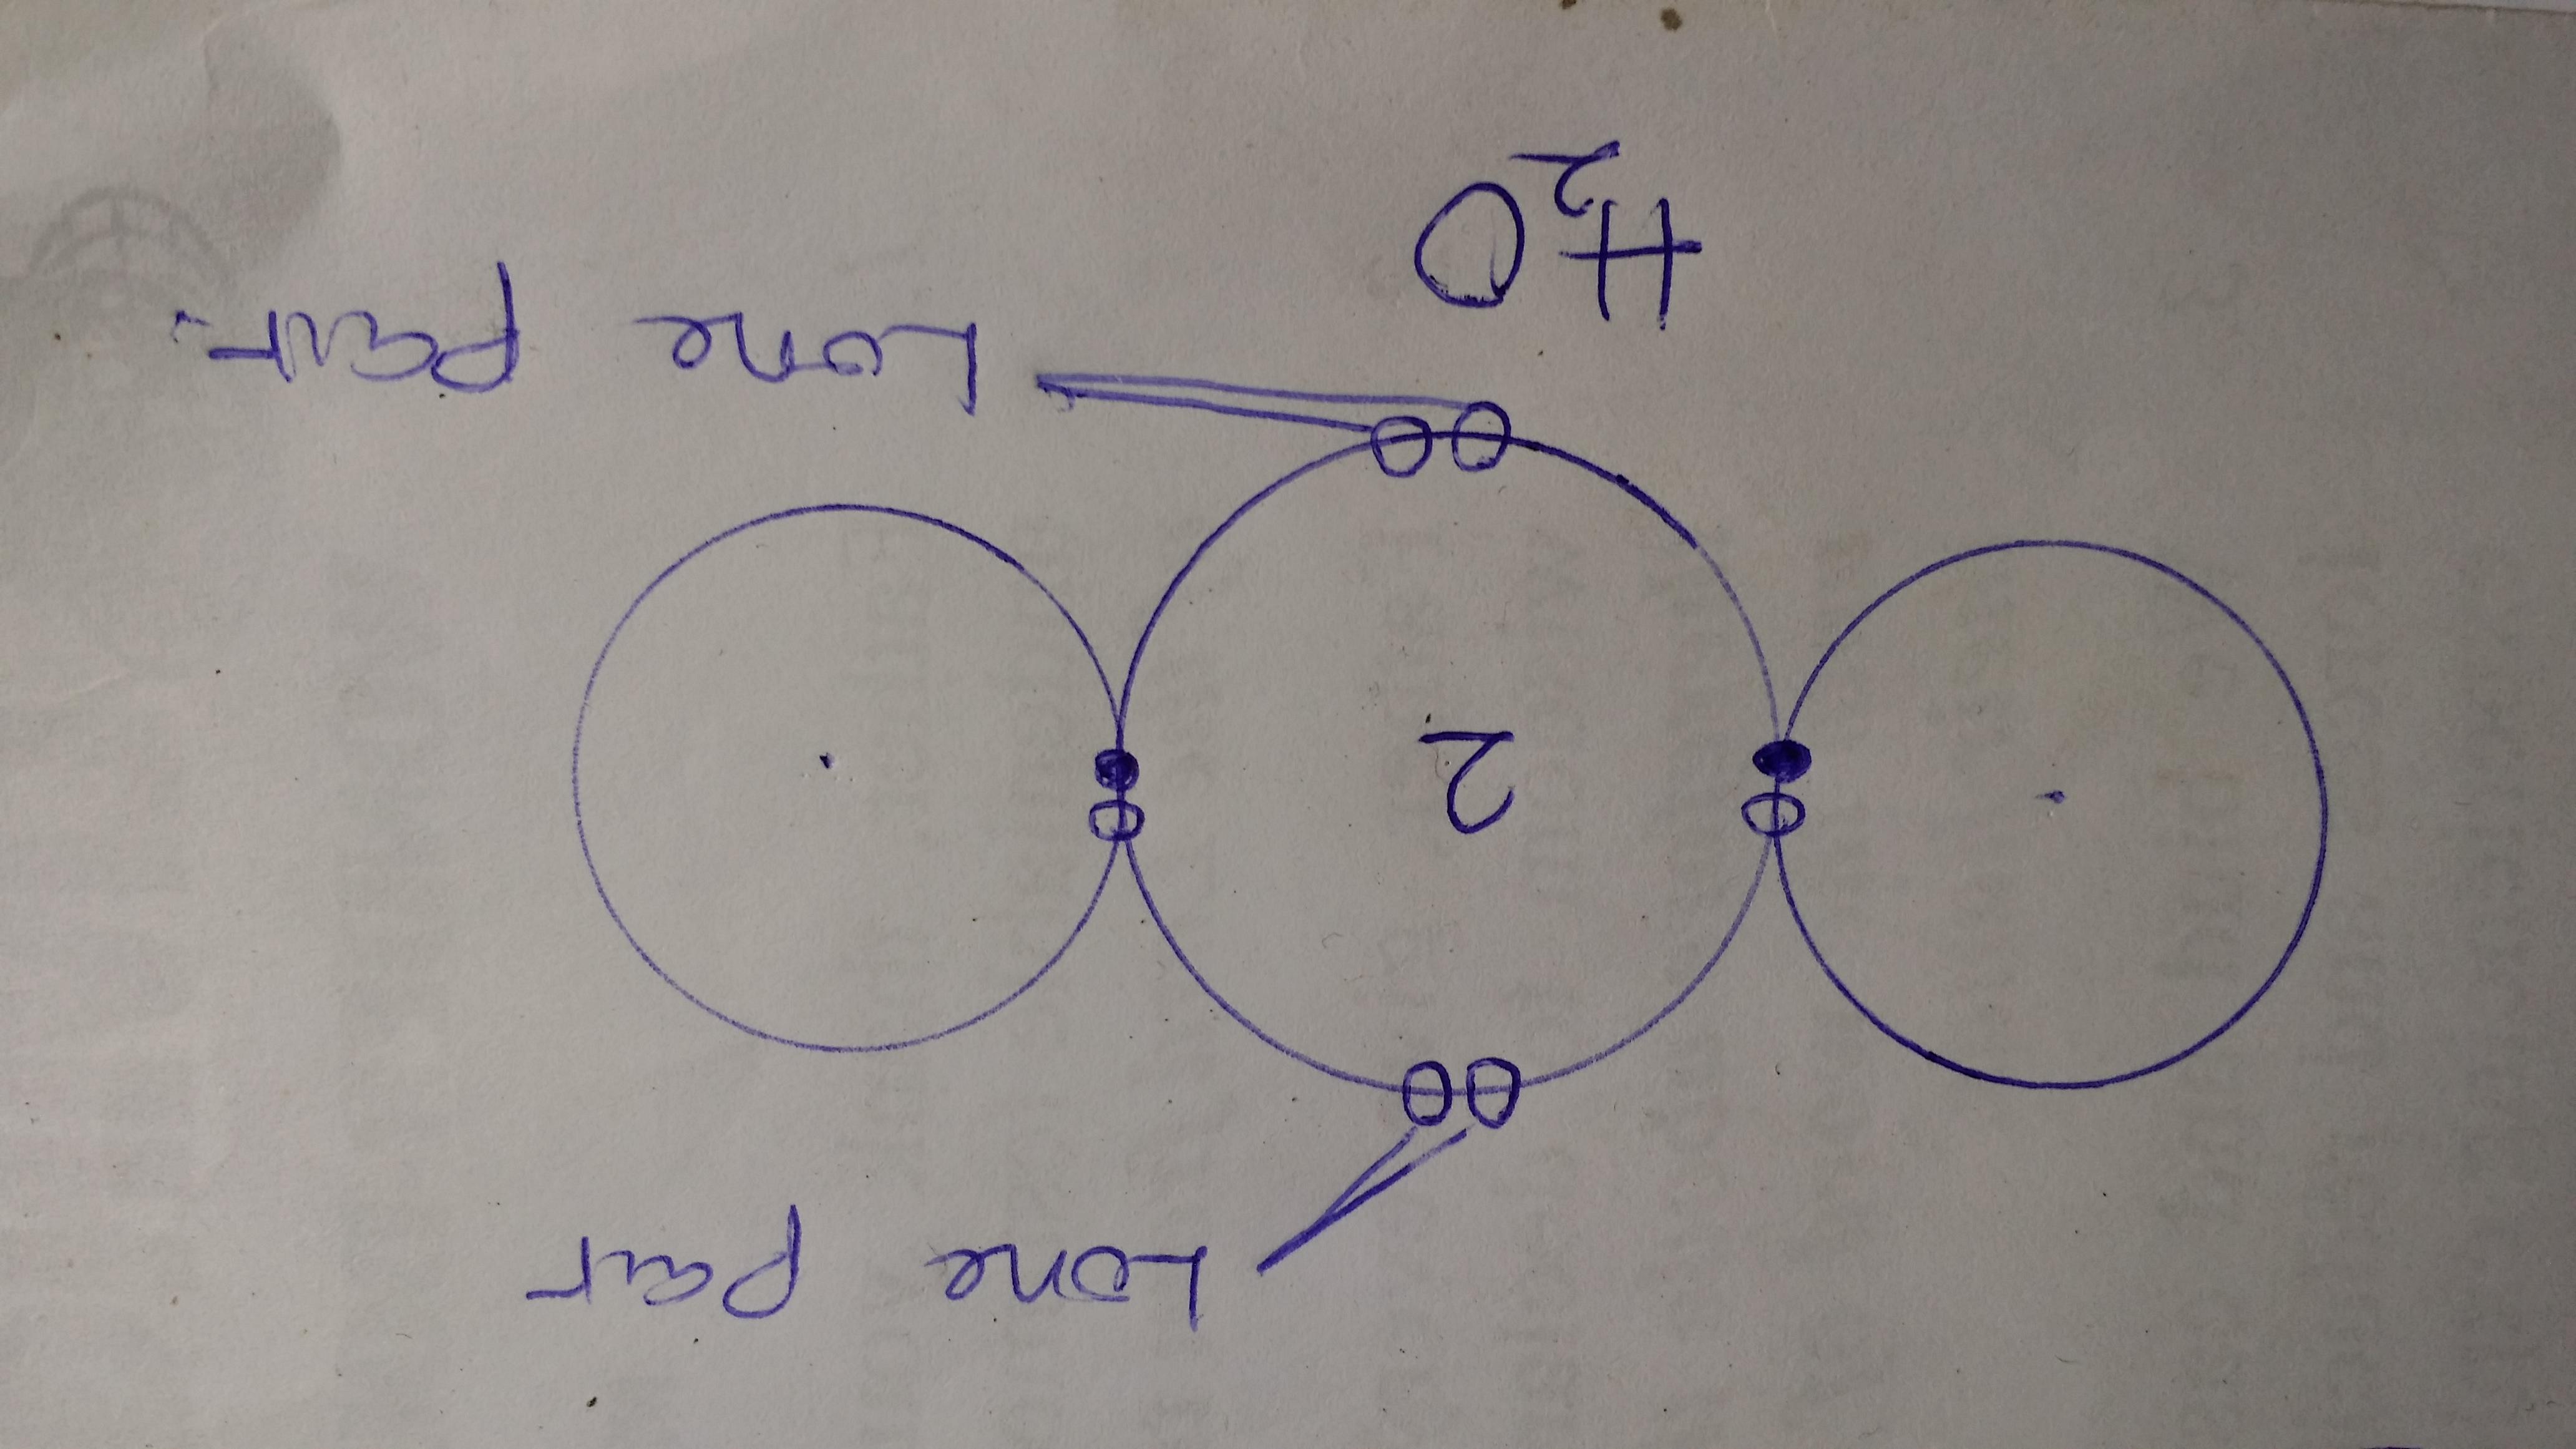 Lone pair
2
Lone pair.
H₂O